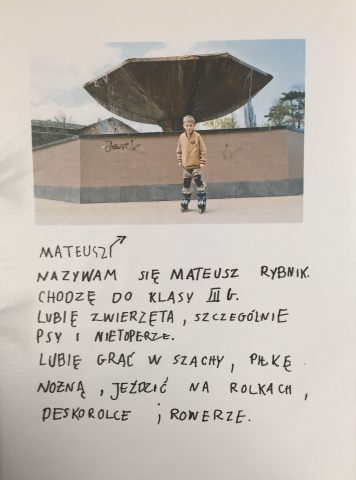 MATEUSZ
NAZYWAM SIĘ MATEUSZ RYBNIK.
CHODZĘ DO KLASY III G.
LUBIĘ ZWIERZĘTA, SZCZEGÓLNIE
PSY I NIETOPERZE.
LUBIĘ GRAĆ W SZACHY, PIŁKĘ
NOŻNĄ, JEŹDZIĆ NA ROLKACH,
DESKOROLCE i ROWERZE.